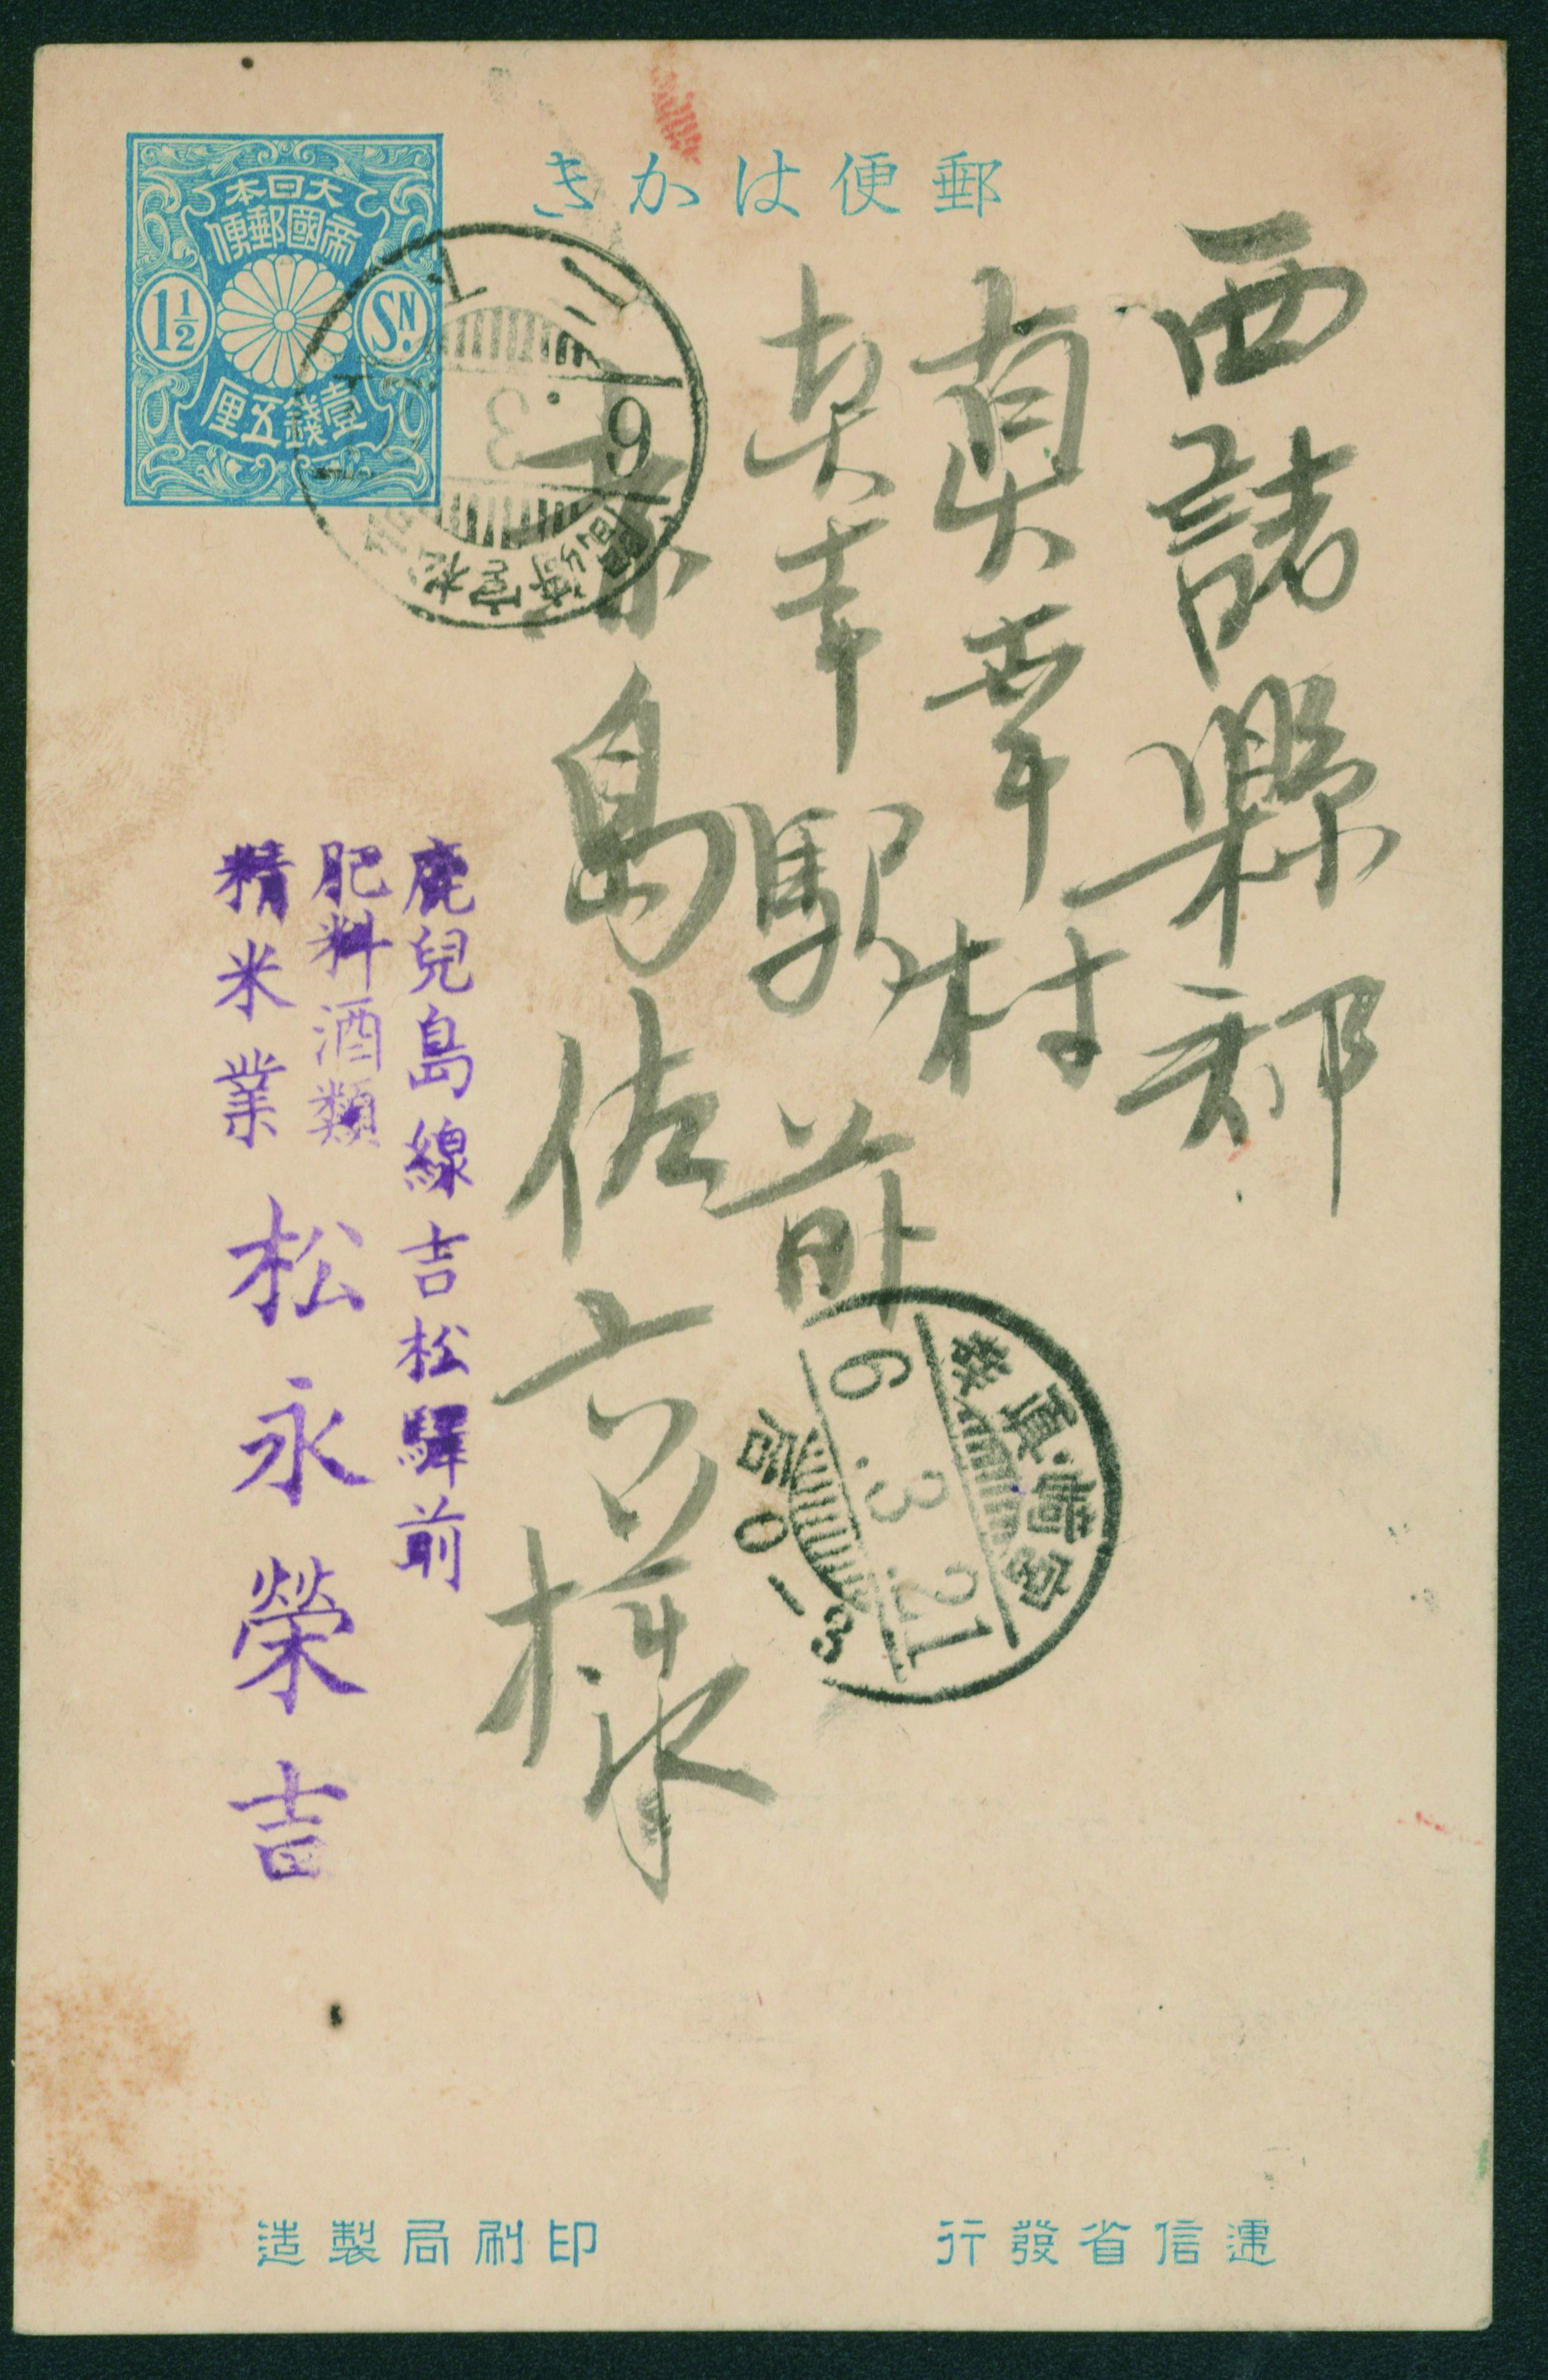 郵便はかき
大日本
帝國郵便
1½ SN.
壹錢五厘
西諸縣郡
真幸村
真幸駅前
島佐六様
6 3
宮崎真
6.3.21
后0-3
鹿兒島線吉松驛前
肥料酒類
精米業
松永榮吉
遞信省發行
印刷局製造